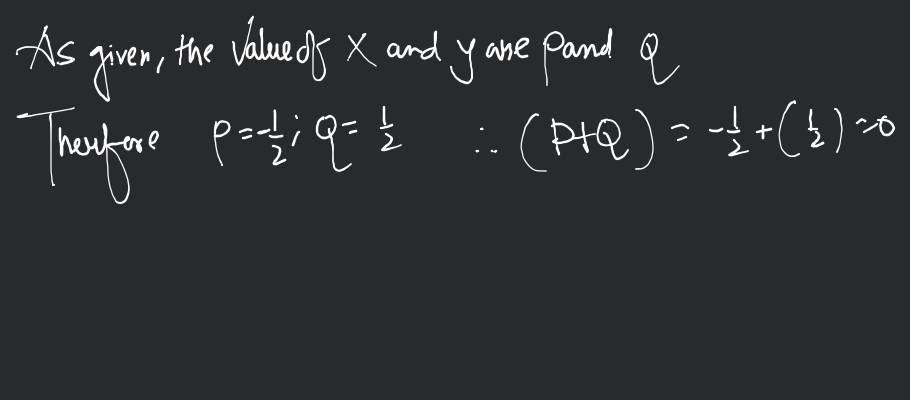 As given, the value of X and y are P and Q
Therefore P = -1/2 ; Q = 1/2 ∴ (P+Q) = -1/2 + (1/2) = 0